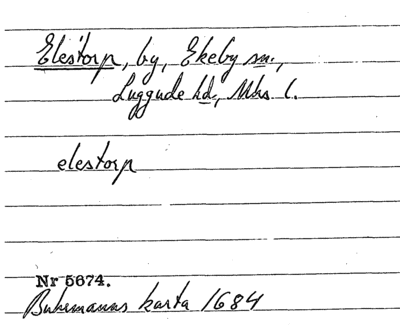 Elestorp, by, Ekeby sn.,
Luggude hd., Mhs l.
elestorp
Nr 5674.
Buhrmanns karta 1684